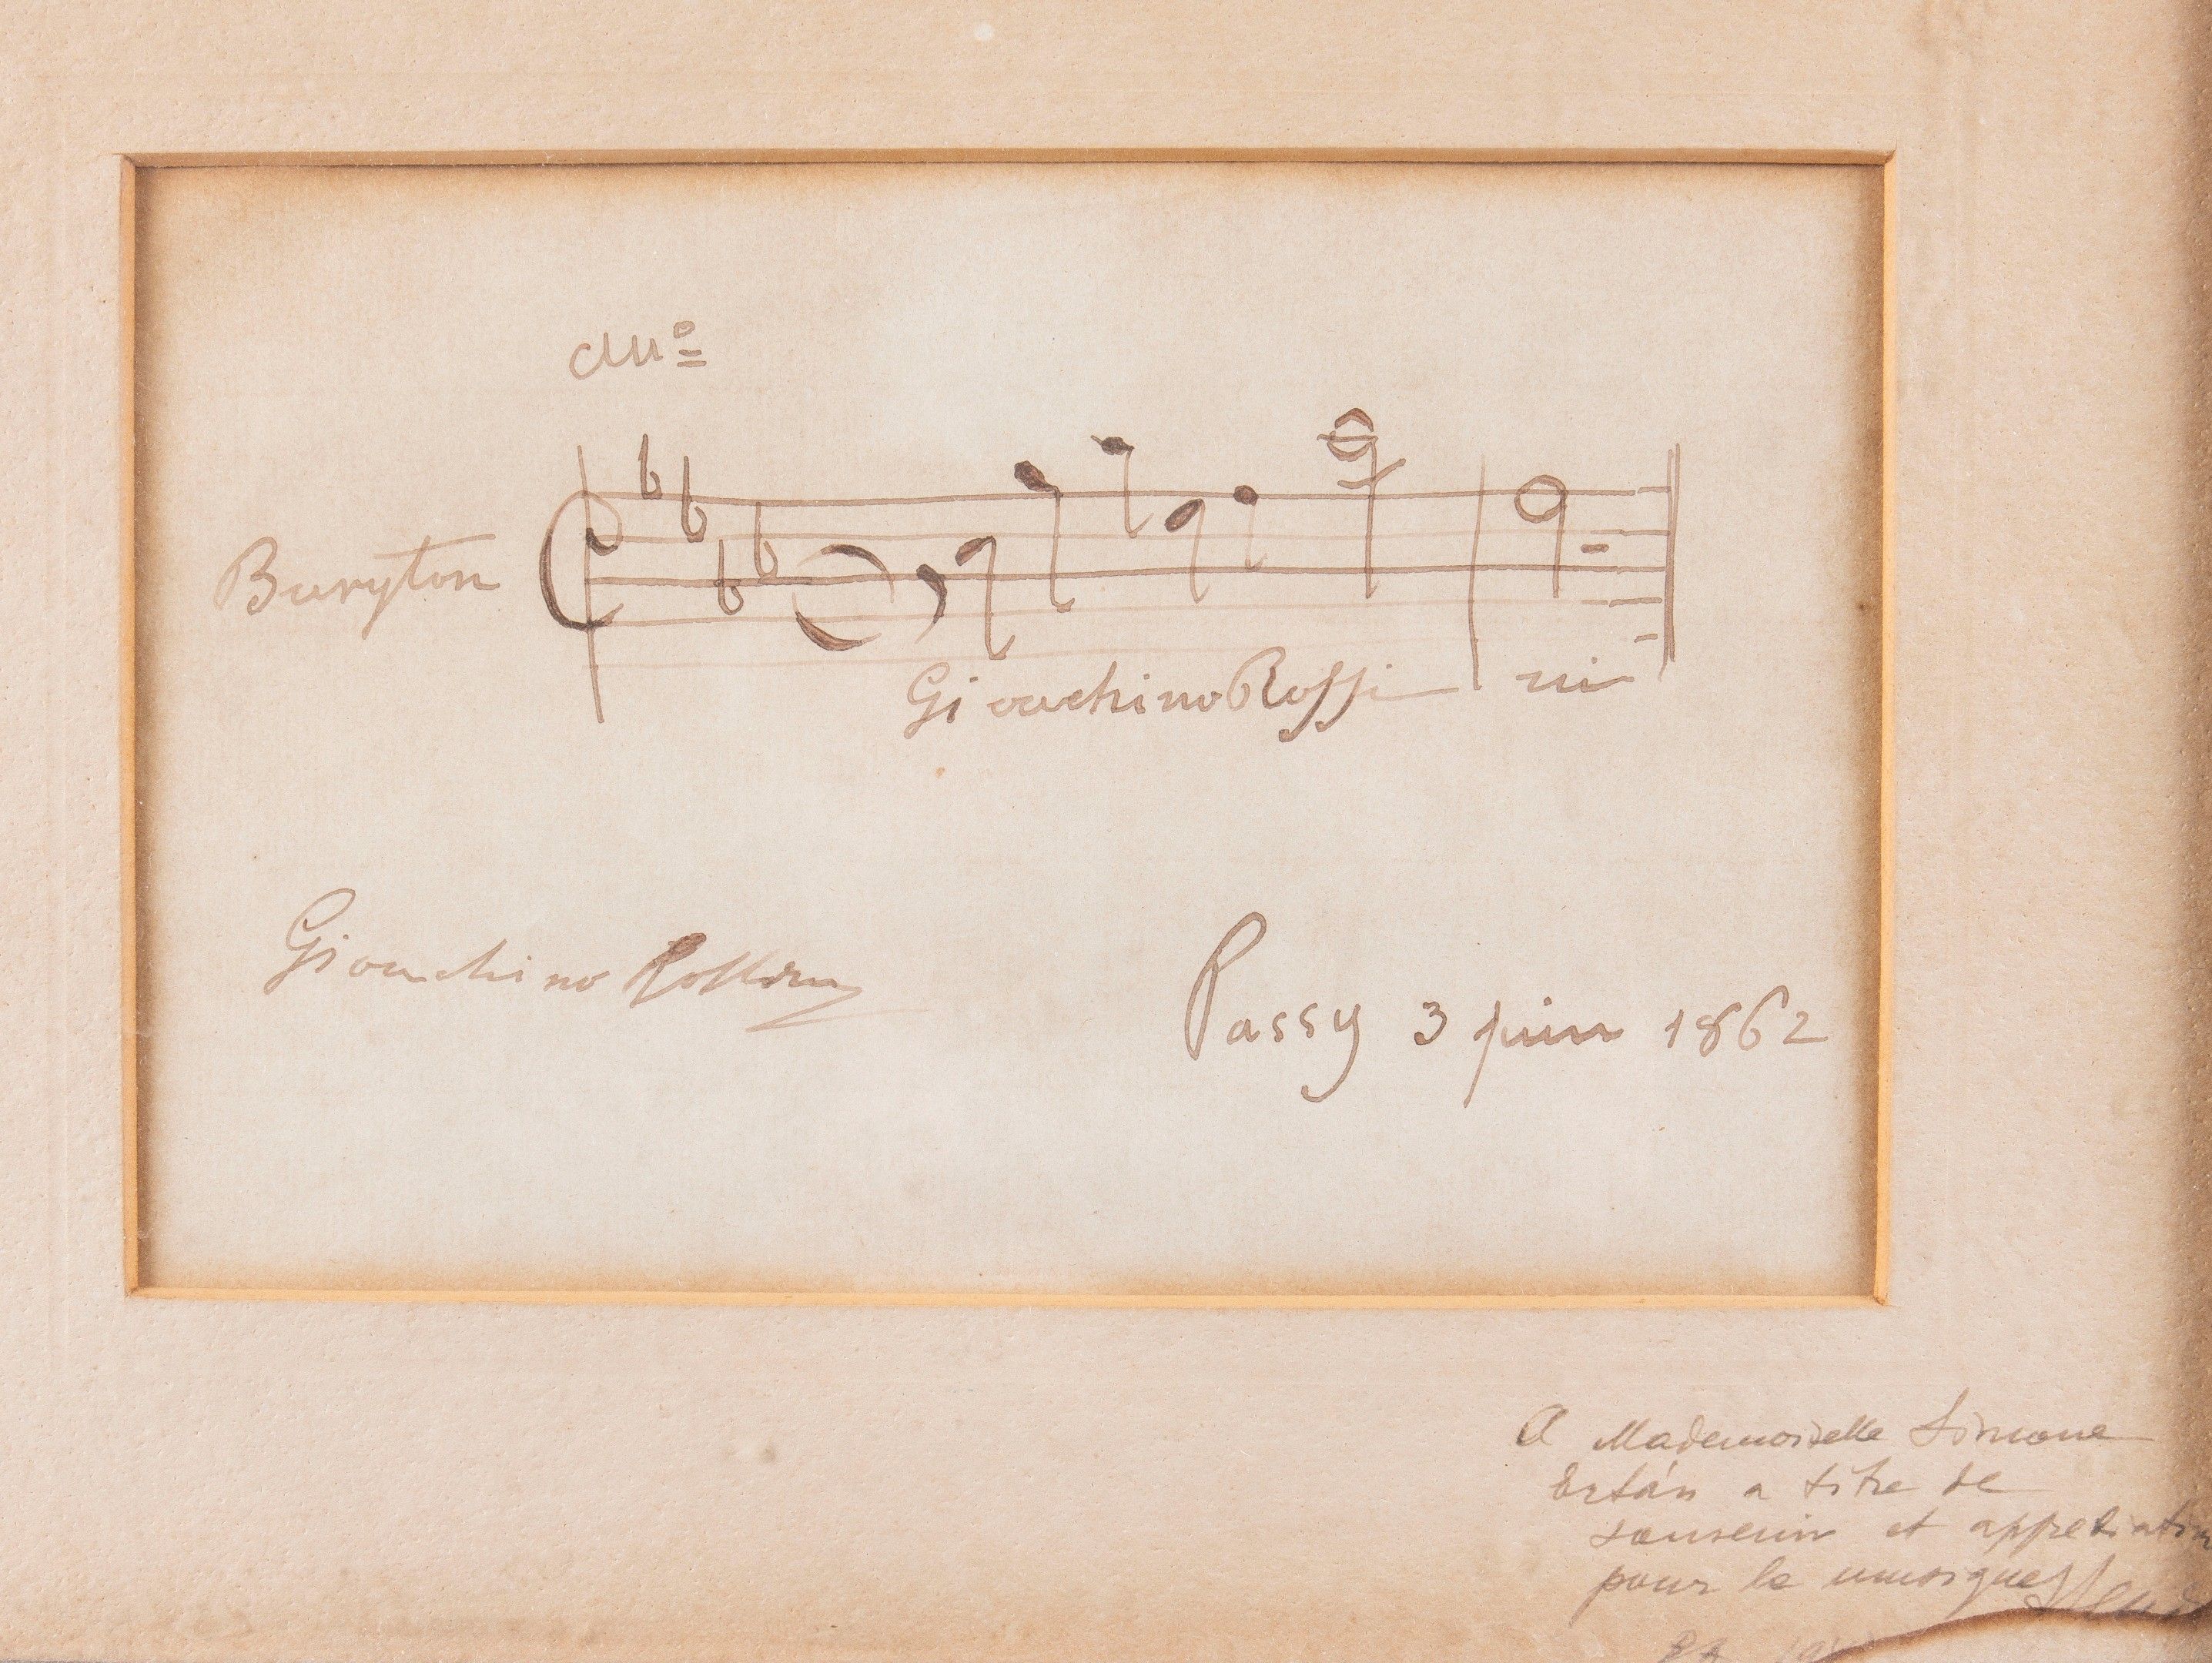 All°
Baryton
Gioachino Rossi ni
Gioachino Rossini
Passy 3 juin 1862
A Mademoiselle Simone
Ertán a titre de
souvenir et appretiation
pour la musique